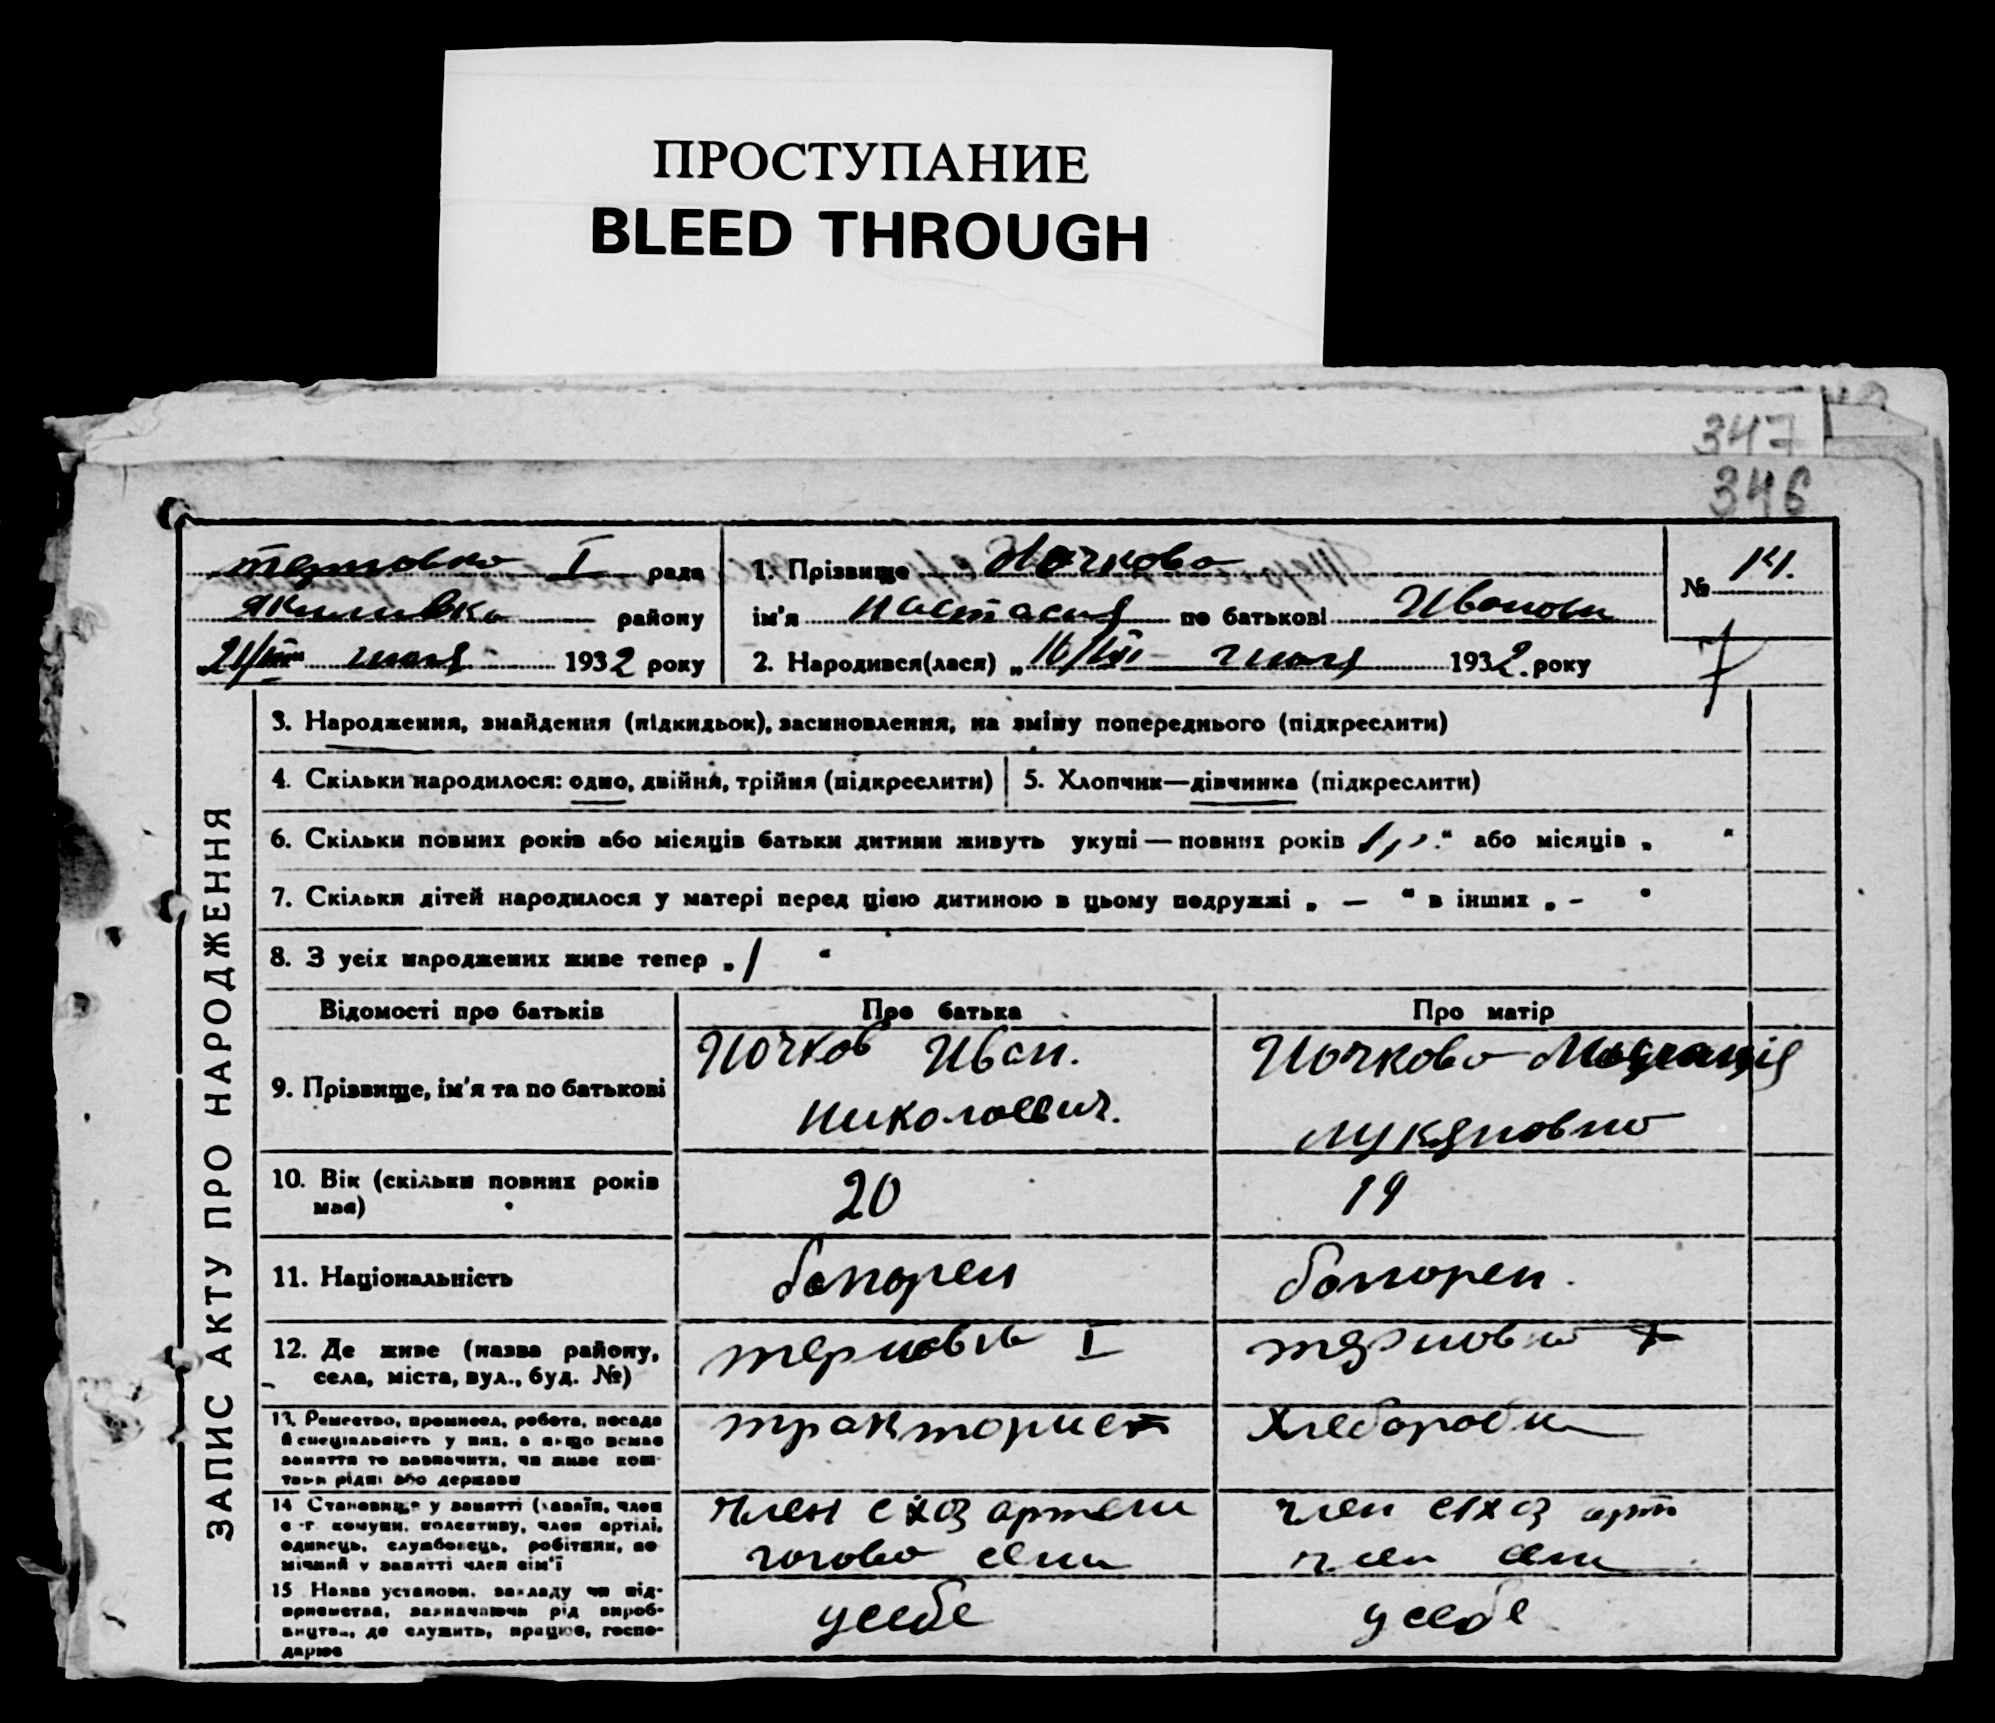 ПРОСТУПАНИЕ
BLEED THROUGH
347
346
Терновка I рада
Якимивка району
21/ июля 1932 року
1. Прізвище Ночкова
ім'я Настасия по батькові Иванови
2. Народився(лася) „16/ июля 1932. року
№ 141.
3. Народження, знайдення (підкидьок), засиновлення, на зміну попереднього (підкреслити)
4. Скільки народилося: одно, двійня, трійня (підкреслити)
5. Хлопчик—дівчинка (підкреслити)
6. Скільки повних років або місяців батьки дитини живуть укупі — повних років “ або місяців „ “
7. Скільки дітей народилося у матері перед цією дитиною в цьому подружжі „ — “ в інших „ - “
8. З усіх народжених живе тепер „ 1 “
ЗАПИС АКТУ ПРО НАРОДЖЕННЯ
Відомості про батьків Про батька Про матір
9. Прізвище, ім'я та по батькові
Ночков Иван.
Николоевич.
Ночкова
Лукяновна
10. Вік (скільки повних років має)
20
19
11. Національність
болгорен
болгорен.
12. Де живе (назва району,
села, міста, вул., буд. №)
терновка I
терновка I
13. Ремество, промисел, робота, посада
й спеціальність у них, а якщо немає
заняття то зазначити, чи живе кош-
тами рідні або держави
тракторист
Хлеборобка
14 Становище у занятті (хазяїн, член
с.-г. комуни, колективу, член артілі,
одинець, службовець, робітник, по-
мічний у занятті член сім'ї
член схоз артели
голова семи
член схоз арт
член семи
15 Назва установи, закладу чи під-
приємства, зазначаючи рід вироб-
ництва, де служить, працює, госпо-
дарює
усебе
усебе